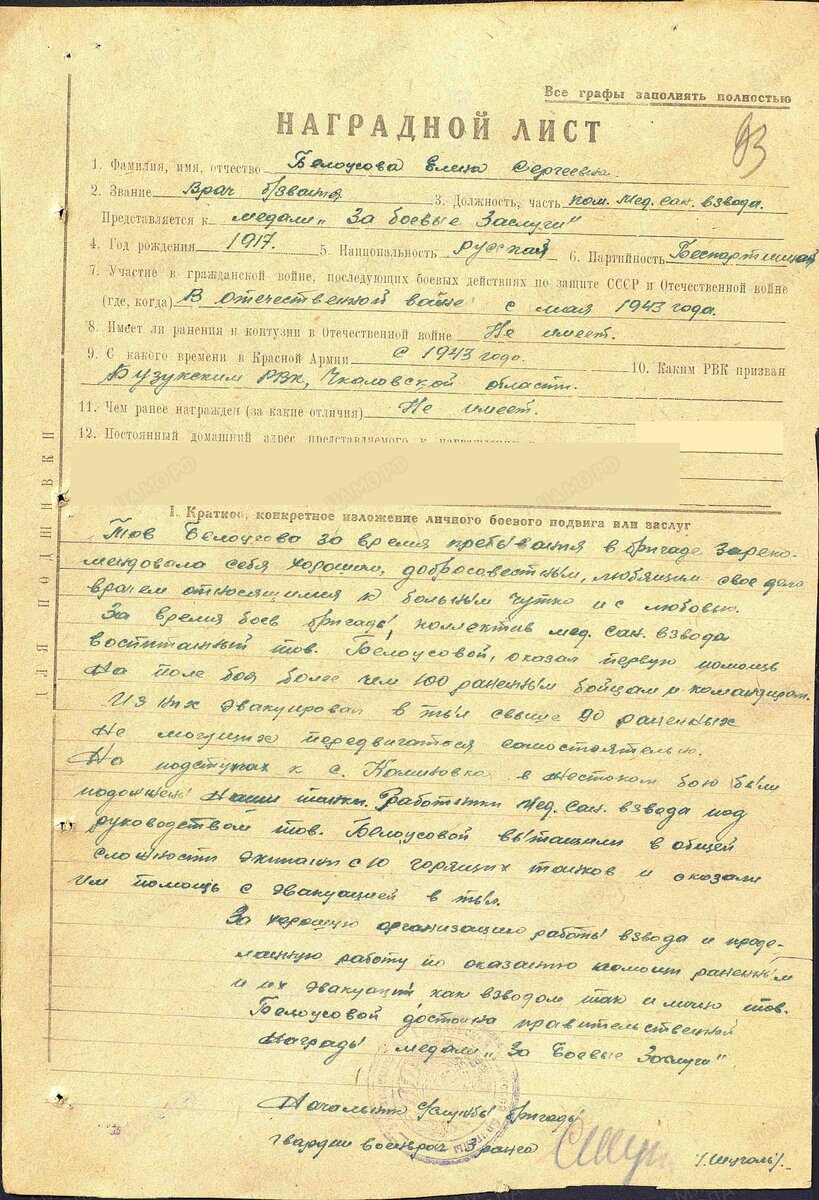 Все графы заполнять полностью
НАГРАДНОЙ ЛИСТ
93
1. Фамилия, имя, отчество Белоусова Елена Сергеевна.
2. Звание Врач б/звания 3. Должность, часть ком. мед. сан. взвода.
Представляется к медали „За боевые Заслуги"
4. Год рождения 1917. 5. Национальность русская 6. Партийность Беспартийная
7. Участие в гражданской войне, последующих боевых действиях по защите СССР и Отечественной войне
(где, когда) В отечественной войне с мая 1943 года.
8. Имеет ли ранения и контузии в Отечественной войне Не имеет.
9. С какого времени в Красной Армии с 1943 года. 10. Каким РВК призван
Бузукским РВК, Чкаловской области.
11. Чем ранее награжден (за какие отличия) Не имеет.
12. Постоянный домашний адрес представляемого к награждению
I. Краткое, конкретное изложение личного боевого подвига или заслуг
Тов Белоусова за время пребывания в бригаде зареко-
мендовала себя хорошим, добросовестным, любящим свое дело
врачем относящимся к больным чутко и с любовью.
За время боев бригады, коллектив мед. сан. взвода
воспитанный тов. Белоусовой, оказал первую помощь
на поле боя более чем 100 раненным бойцам и командирам.
Из них эвакуировал в тыл свыше 90 раненных
не могущих передвигаться самостоятельно.
На подступах к с. Калиновка в жестоком бою были
подожжены наши танки. Работники мед. сан. взвода под
руководством тов. Белоусовой вытащили в общей
сложности экипажи с 10 горящих танков и оказали
им помощь с эвакуацией в тыл.
За хорошую организацию работы взвода и проде-
ланную работу по оказанию помощи раненным
и их эвакуации как взводом так и лично тов.
Белоусовой достойна правительственной
награды медали „За Боевые Заслуги"
Начальник с/службы бригады
гвардии военврач 3 ранга /Шуголь/.
ДЛЯ ПОДШИВКИ